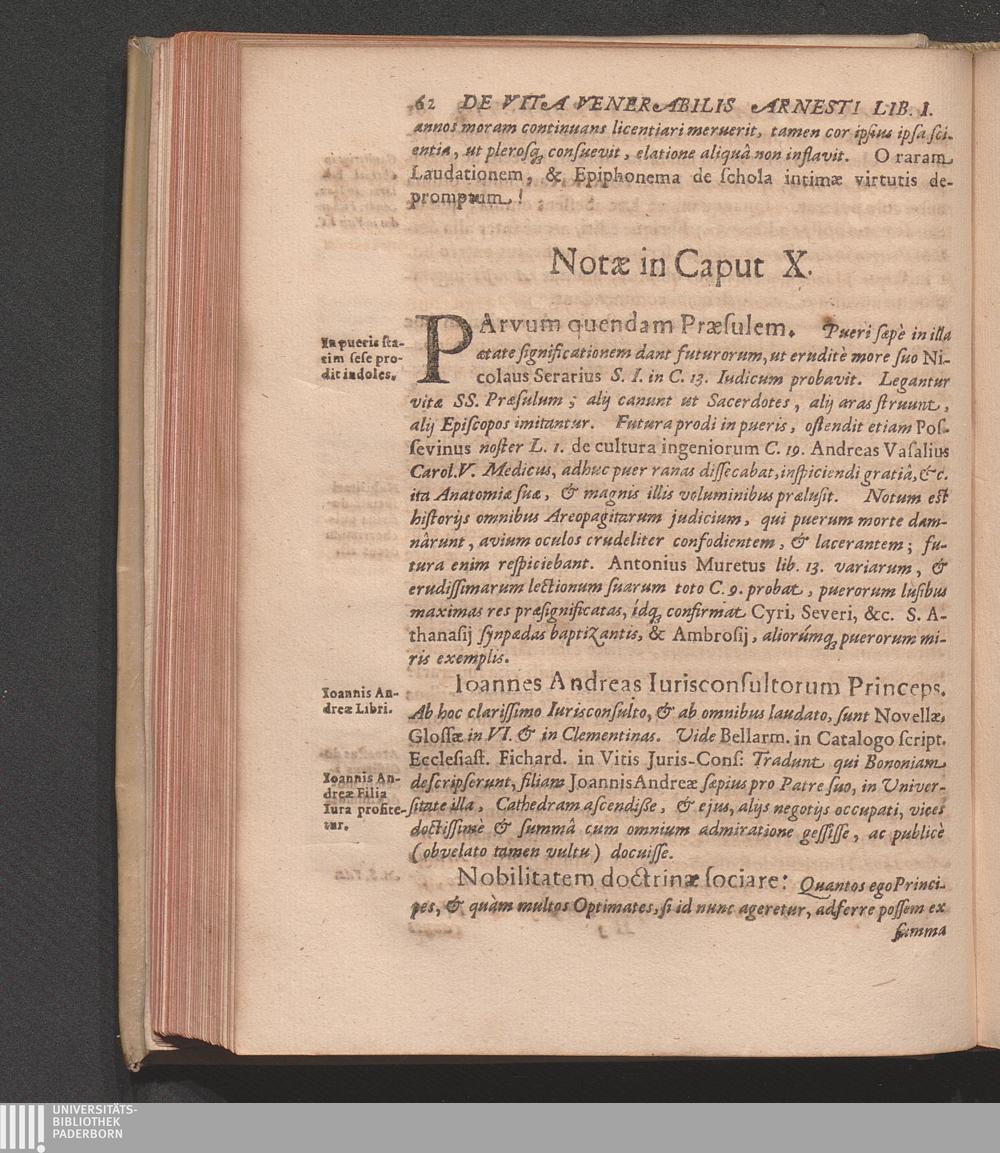 62 DE VITA VENERABILIS ARNESTI LIB. I.
annos moram continuans licentiari meruerit, tamen cor ipſius ipſa ſci-
entia, ut pleroſq; conſuevit, elatione aliquâ non inflavit. O raram
Laudationem, & Epiphonema de ſchola intimæ virtutis de-
promptum!
Notæ in Caput X.
In pueris ſta-
tim ſeſe pro-
dit indoles.
PArvum quendam Præſulem. Pueri ſæpè in illa
ætate ſignificationem dant futurorum, ut eruditè more ſuo Ni-
colaus Serarius S. I. in C. 13. Iudicum probavit. Legantur
vitæ SS. Præſulum; alij canunt ut Sacerdotes, alij aras ſtruunt,
alij Epiſcopos imitantur. Futura prodi in pueris, oſtendit etiam Poſ-
ſevinus noſter L. 1. de cultura ingeniorum C. 19. Andreas Vaſalius
Carol. V. Medicus, adhuc puer ranas diſſecabat, inſpiciendi gratiâ, &c.
ita Anatomiæ ſuæ, & magnis illis voluminibus præluſit. Notum eſt
hiſtorijs omnibus Areopagitarum judicium, qui puerum morte dam-
nârunt, avium oculos crudeliter confodientem, & lacerantem; fu-
tura enim reſpiciebant. Antonius Muretus lib. 13. variarum, &
erudiſſimarum lectionum ſuarum toto C. 9. probat, puerorum luſibus
maximas res præſignificatas, idq; confirmat Cyri, Severi, &c. S. A-
thanaſij ſynpædas baptizantis, & Ambroſij, aliorúmq; puerorum mi-
ris exemplis.
Ioannis An-
dreæ Libri.
Ioannes Andreas Iurisconſultorum Princeps.
Ab hoc clariſſimo Iurisconſulto, & ab omnibus laudato, ſunt Novellæ,
Gloſſæ in VI. & in Clementinas. Vide Bellarm. in Catalogo ſcript.
Eccleſiaſt. Fichard. in Vitis Juris-Conſ: Tradunt qui Bononiam
Ioannis An-
dreæ Filia
Iura profite-
tur.
deſcripſerunt, filiam Joannis Andreæ ſæpius pro Patre ſuo, in Univer-
ſitate illa, Cathedram aſcendiſſe, & ejus, alijs negotijs occupati, vices
doctiſſimè & ſummâ cum omnium admiratione geſſiſſe, ac publicè
(obvelato tamen vultu) docuiſſe.
Nobilitatem doctrinæ ſociare: Quantos ego Princi-
pes, & quàm multos Optimates, ſi id nunc ageretur, adferre poſſem ex
ſumma
UNIVERSITÄTS-
BIBLIOTHEK
PADERBORN